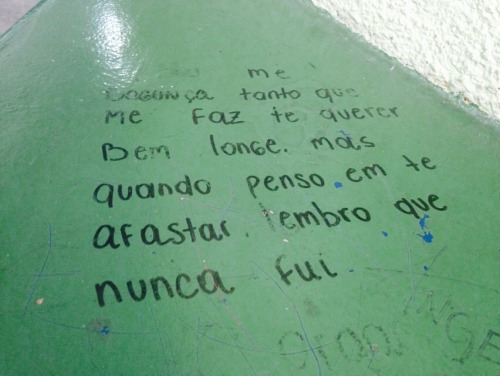 me
Bagunça tanto que
me faz te querer
Bem longe. mas
quando penso em te
afastar. lembro que
nunca fui.